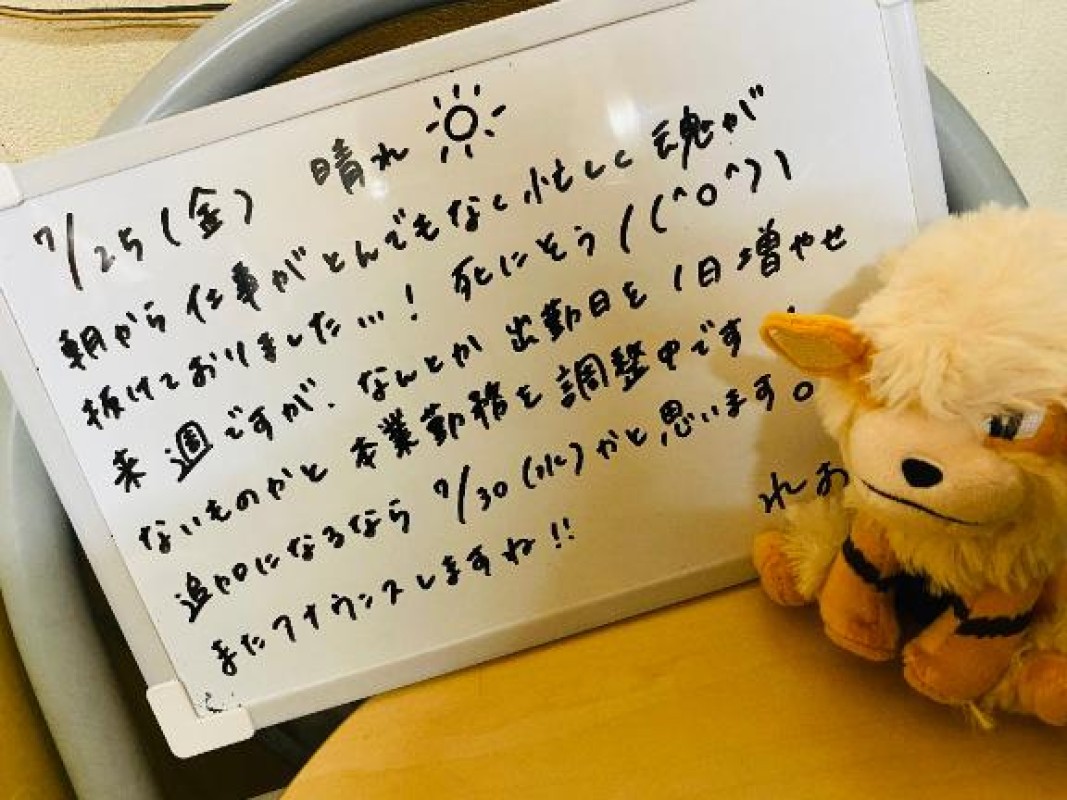 7/25(金) 晴れ
朝から仕事がとんでもなく忙しく魂が
抜けておりました…! 死にそう/(^o^)\
来週ですが、なんとか出勤日を1日増やせ
ないものかと本業勤務を調整中です
追加になるなら7/30(水)かと思います。
またアナウンスしますね!!
れお